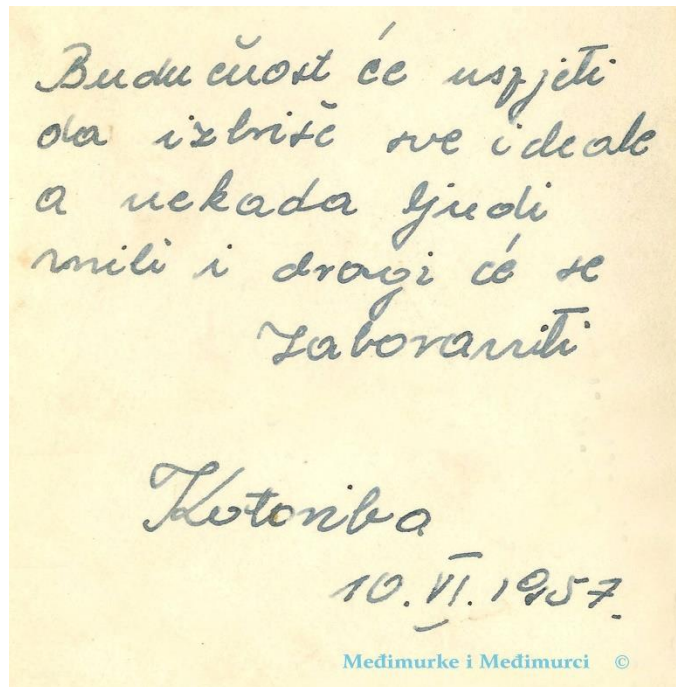 Budućnost će uspjeti
da izbriše sve ideale
a nekada ljudi
mili i dragi će se
zaboraviti
Kotoriba
10. VI. 1957.
Međimurke i Međimurci ©